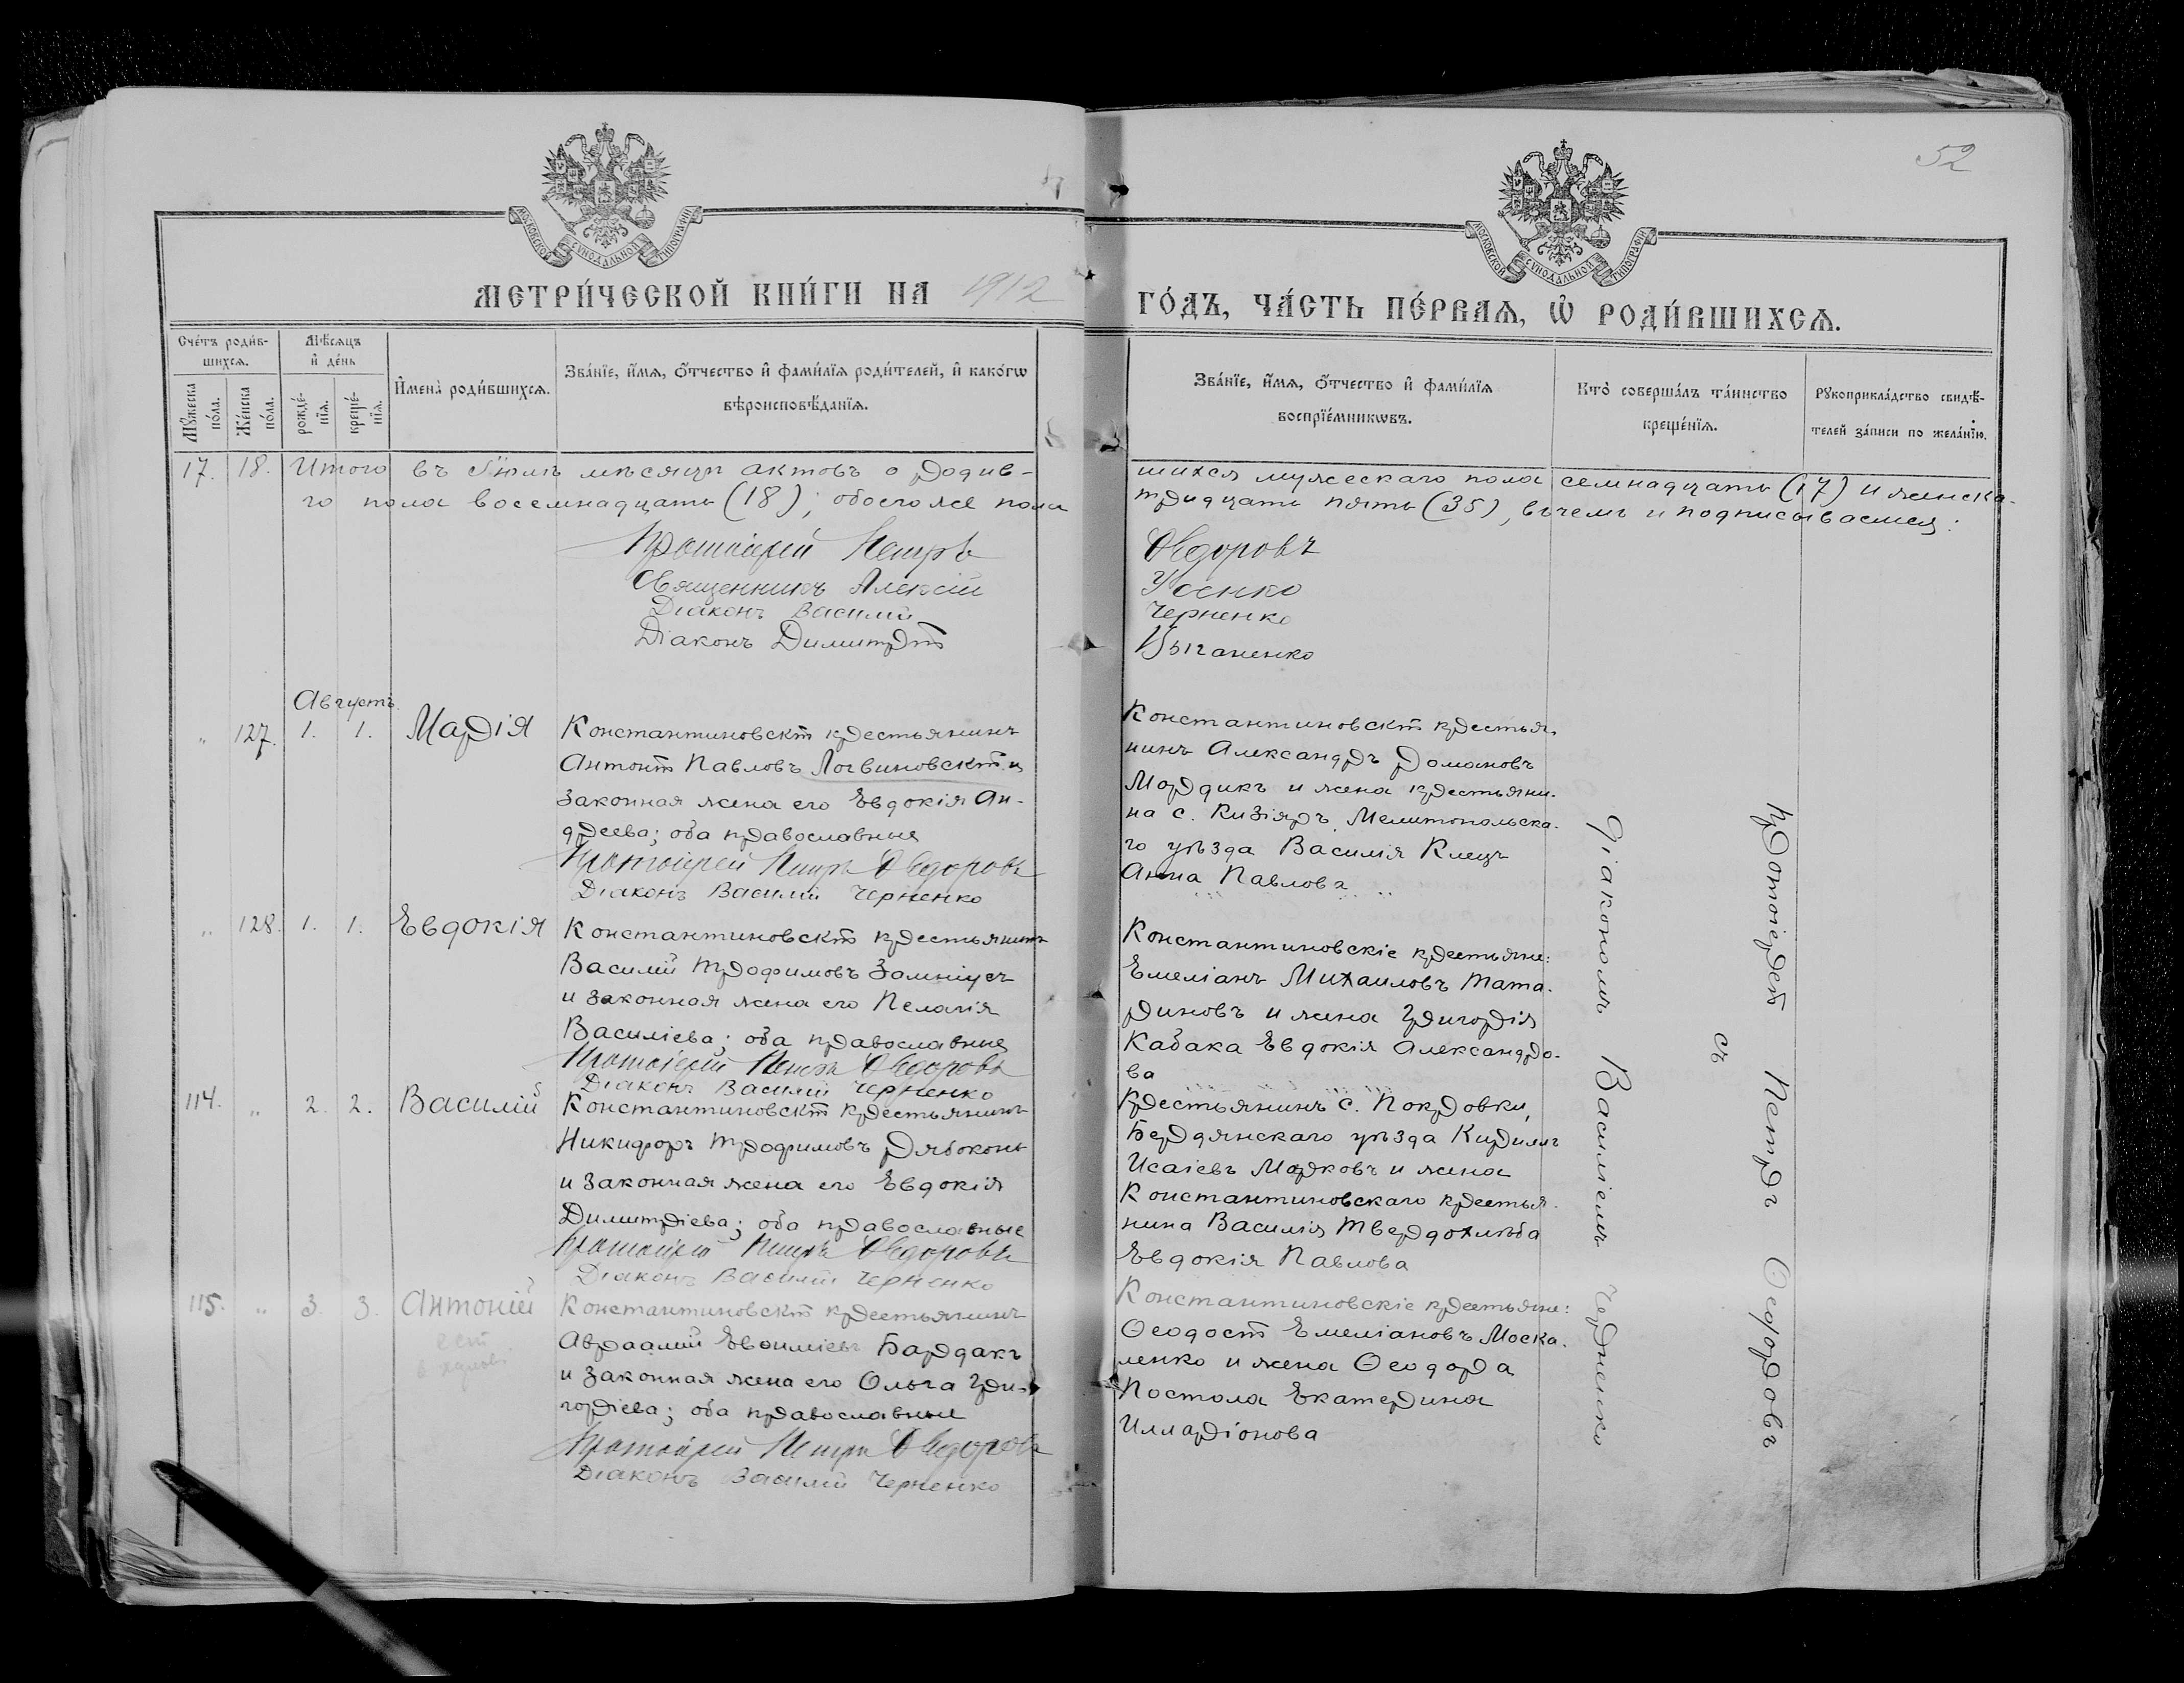 52
МОСКОВСКОЙ СѴНОДАЛЬНОЙ ТИПОГРАФІИ
МОСКОВСКОЙ СѴНОДАЛЬНОЙ ТИПОГРАФІИ
МЕТРИ́ЧЕСКОЙ КНИ́ГИ НА 1912 ГО́ДЪ, ЧА́СТЬ ПЕ́РВАѦ, Ѽ РОДИ́ВШИХСѦ.
Сче́тъ роди́в-
шихсѧ.
Мꙋ́жеска по́ла.
Же́нска по́ла.
Мѣ́сѧцъ
и҆ де́нь
рожде́-
нїѧ.
креще́-
нїѧ.
И҆мена̀ роди́вшихсѧ.
Зва́нїе, и҆́мѧ, ѻ҆́тчество и҆ фами́лїѧ роди́телей, и҆ како́гѡ
вѣроисповѣ́данїѧ.
Зва́нїе, и҆́мѧ, ѻ҆́тчество и҆ фами́лїѧ
воспрїе́мникѡвъ.
Кто̀ соверша́лъ та́инство
креще́нїѧ.
Рꙋкоприкла́дство свидѣ́-
телей за́писи по жела́нїю.
17. 18. Итого въ Іюлѣ мѣсяцѣ актовъ о родив-
шихся мужескаго пола семнадцать (17) и женска-
го пола восемнадцать (18); обоего же пола
тридцать пять (35), въ чемъ и подписываемся:
Протоіерей Петръ Ѳедоровъ
Священникъ Алексій Усенко
Діаконъ Василій Черненко
Діаконъ Димитрій Цыганенко
Августъ.
„ 127. 1. 1. Марія
Константиновскій крестьянинъ
Антоній Павловъ Логвиновскій и
законная жена его Евдокія Ан-
дреева; оба православные
Протоіерей Петръ Ѳедоровъ
Діаконъ Василій Черненко
Константиновскій крестья-
нинъ Александръ Романовъ
Мордикъ и жена крестьяни-
на с. Кизіяръ, Мелитопольска-
го уѣзда Василія Клецъ
Анна Павлова
„ 128. 1. 1. Евдокія
Константиновскій крестьянинъ
Василій Трофимовъ
и законная жена его Пелагія
Василіева; оба православные
Протоіерей Петръ Ѳедоровъ
Діаконъ Василій Черненко
Константиновскіе крестьяне:
Емеліанъ Михаиловъ Тата-
риновъ и жена Григорія
Кабака Евдокія Александро-
ва
114. „ 2. 2. Василій
Константиновскій крестьянинъ
Никифоръ Трофимовъ Рябоконь
и законная жена его Евдокія
Димитріева; оба православные
Протоіерей Петръ Ѳедоровъ
Діаконъ Василій Черненко
Крестьянинъ с. Покровки,
Бердянскаго уѣзда Кириллъ
Исаіевъ Марковъ и жена
Константиновскаго крестья-
нина Василія Твердохлѣба
Евдокія Павлова
115. „ 3. 3. Антоній
Константиновскій крестьянинъ
Авраамій Евѳиміевъ Бардакъ
и законная жена его Ольга Гри-
горіева; оба православные
Протоіерей Петръ Ѳедоровъ
Діаконъ Василій Черненко
Константиновскіе крестьяне:
Ѳеодосій Емеліановъ Моска-
ленко и жена Ѳеодора
Постола Екатерина
Илларіонова
Протоіерей Петръ Ѳеодоровъ
съ
діакономъ Василіемъ Черненко